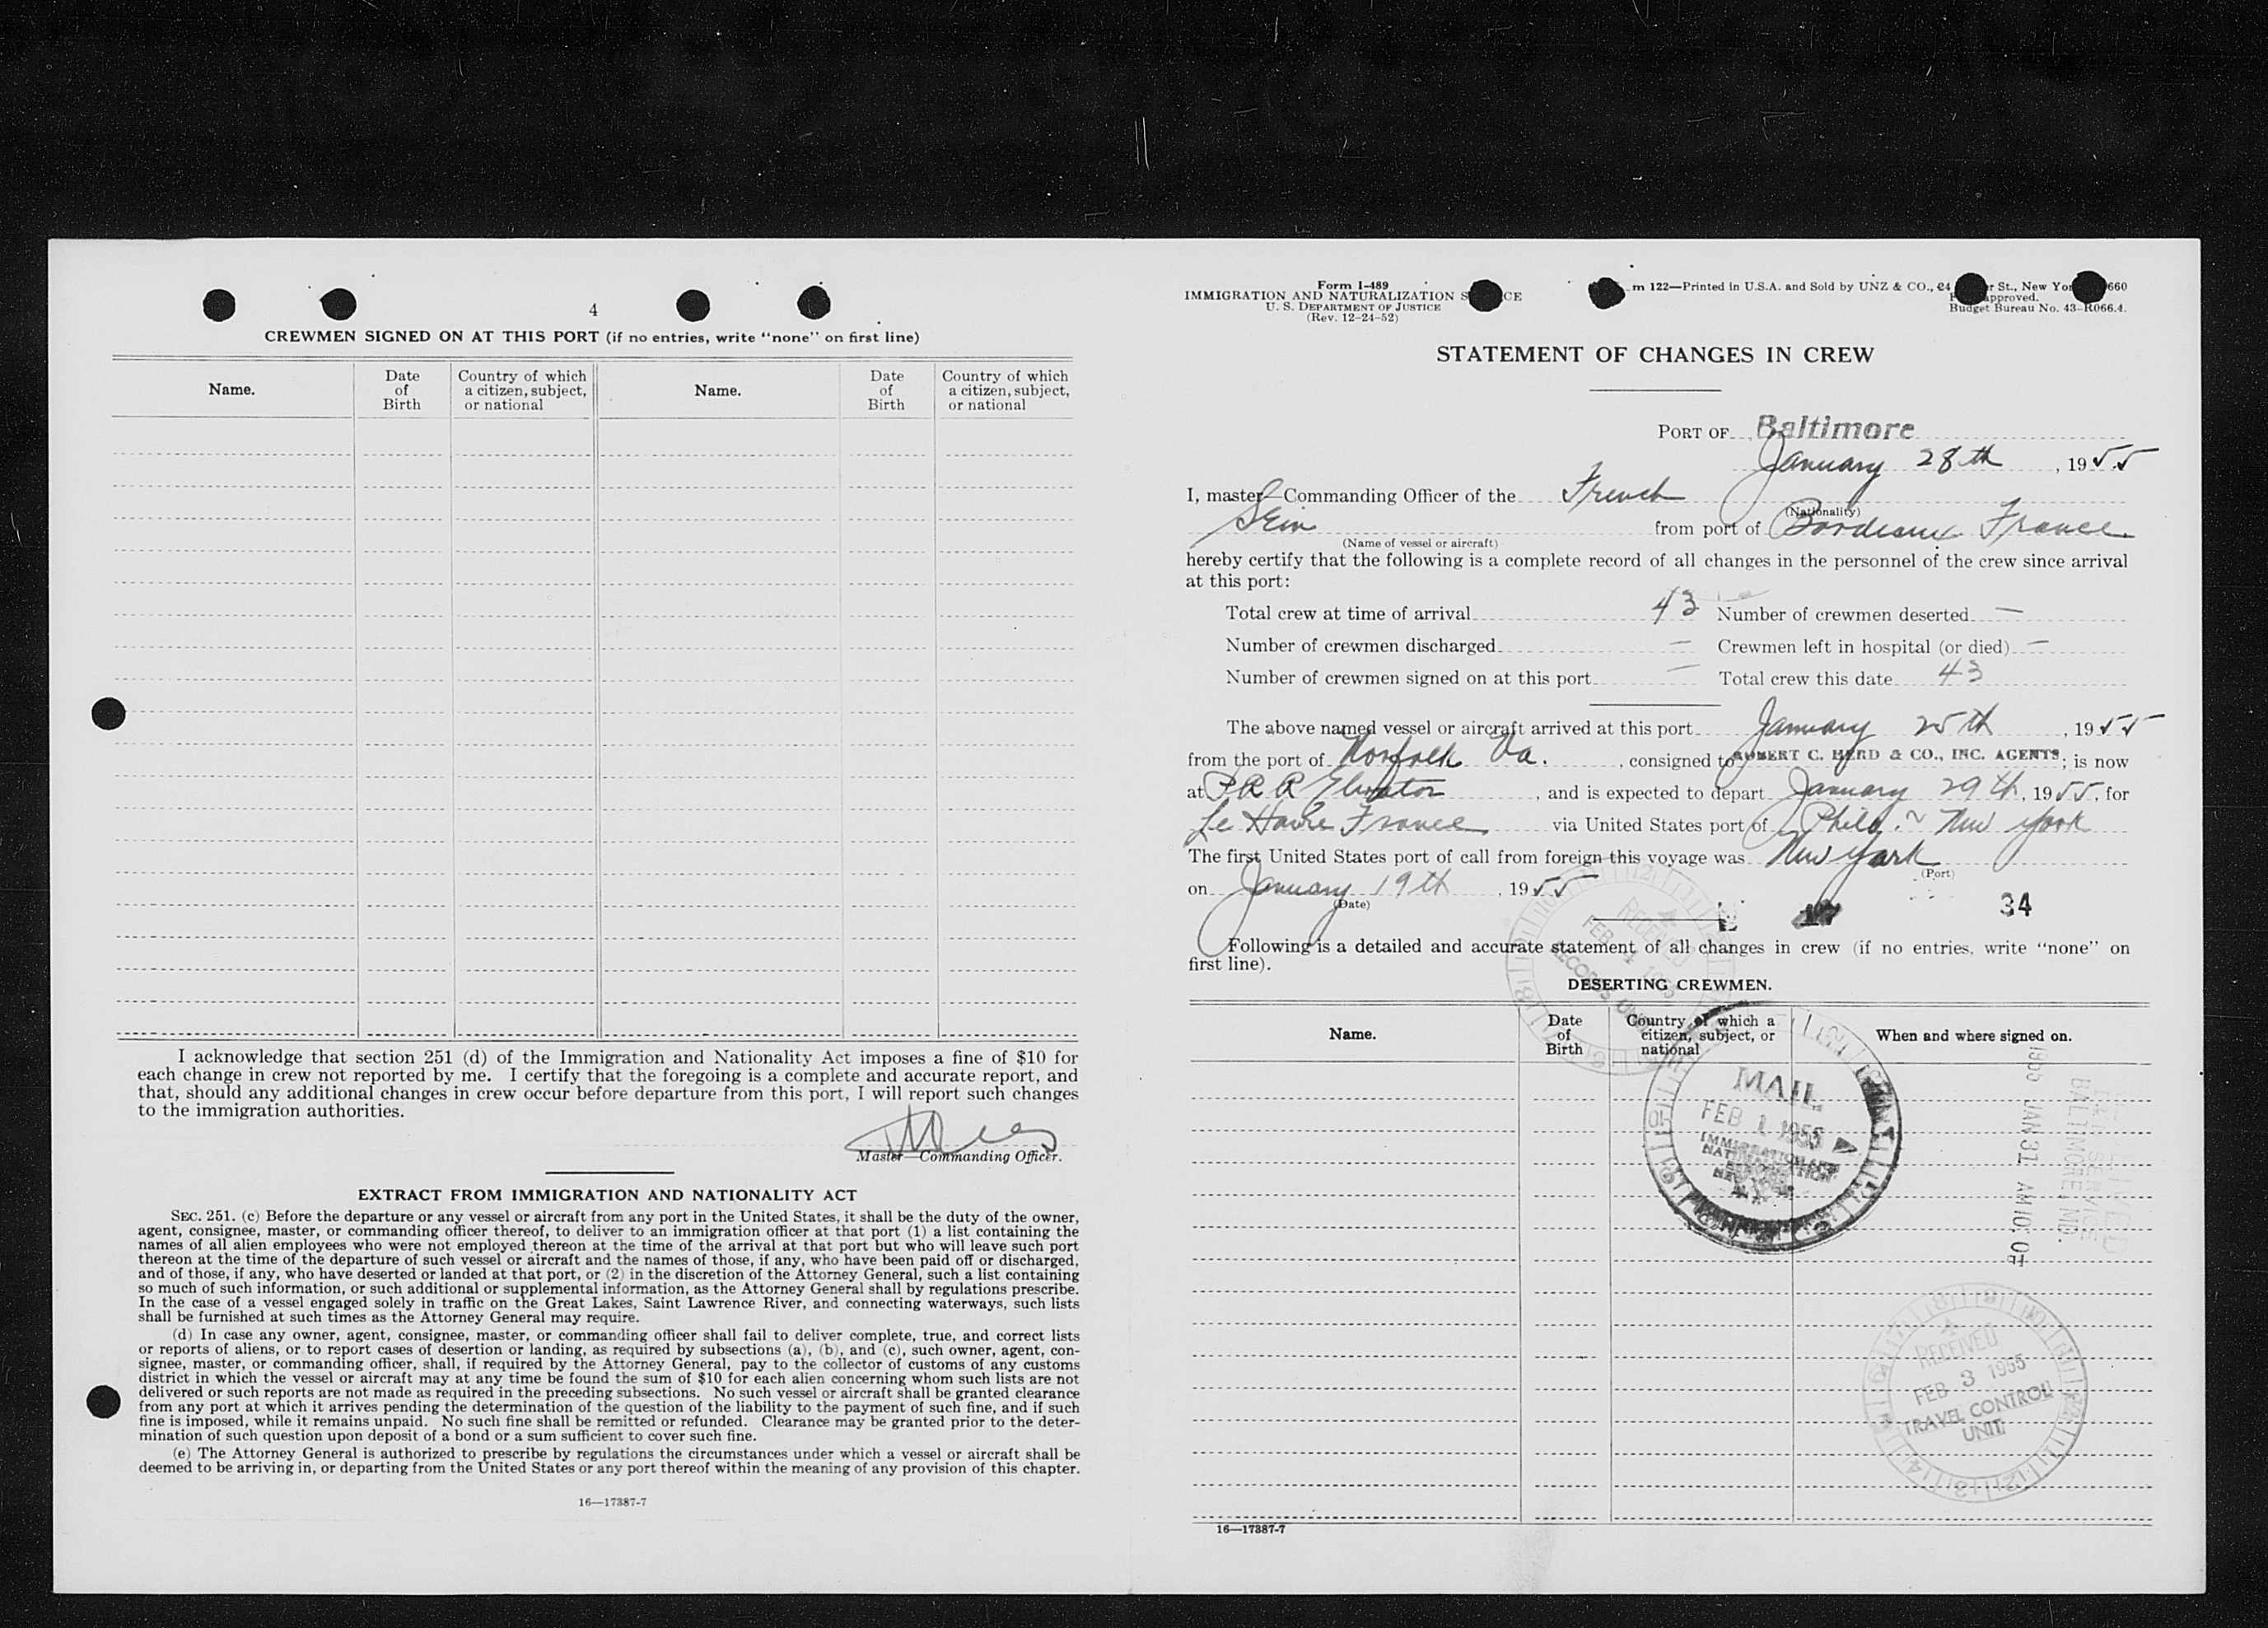 4
CREWMEN SIGNED ON AT THIS PORT (if no entries, write "none" on first line)
Name.
Date of Birth
Country of which a citizen, subject, or national
Name.
Date of Birth
Country of which a citizen, subject, or national
I acknowledge that section 251 (d) of the Immigration and Nationality Act imposes a fine of $10 for
each change in crew not reported by me. I certify that the foregoing is a complete and accurate report, and
that, should any additional changes in crew occur before departure from this port, I will report such changes
to the immigration authorities.
Master—Commanding Officer.
EXTRACT FROM IMMIGRATION AND NATIONALITY ACT
SEC. 251. (c) Before the departure or any vessel or aircraft from any port in the United States, it shall be the duty of the owner,
agent, consignee, master, or commanding officer thereof, to deliver to an immigration officer at that port (1) a list containing the
names of all alien employees who were not employed thereon at the time of the arrival at that port but who will leave such port
thereon at the time of the departure of such vessel or aircraft and the names of those, if any, who have been paid off or discharged,
and of those, if any, who have deserted or landed at that port, or (2) in the discretion of the Attorney General, such a list containing
so much of such information, or such additional or supplemental information, as the Attorney General shall by regulations prescribe.
In the case of a vessel engaged solely in traffic on the Great Lakes, Saint Lawrence River, and connecting waterways, such lists
shall be furnished at such times as the Attorney General may require.
(d) In case any owner, agent, consignee, master, or commanding officer shall fail to deliver complete, true, and correct lists
or reports of aliens, or to report cases of desertion or landing, as required by subsections (a), (b), and (c), such owner, agent, con-
signee, master, or commanding officer, shall, if required by the Attorney General, pay to the collector of customs of any customs
district in which the vessel or aircraft may at any time be found the sum of $10 for each alien concerning whom such lists are not
delivered or such reports are not made as required in the preceding subsections. No such vessel or aircraft shall be granted clearance
from any port at which it arrives pending the determination of the question of the liability to the payment of such fine, and if such
fine is imposed, while it remains unpaid. No such fine shall be remitted or refunded. Clearance may be granted prior to the deter-
mination of such question upon deposit of a bond or a sum sufficient to cover such fine.
(e) The Attorney General is authorized to prescribe by regulations the circumstances under which a vessel or aircraft shall be
deemed to be arriving in, or departing from the United States or any port thereof within the meaning of any provision of this chapter.
16—17387-7
Form I-489
IMMIGRATION AND NATURALIZATION S CE
U. S. DEPARTMENT OF JUSTICE
(Rev. 12-24-52)
m 122—Printed in U.S.A. and Sold by UNZ & CO., 24 r St., New Yor 660
approved.
Budget Bureau No. 43-R066.4.
STATEMENT OF CHANGES IN CREW
PORT OF Baltimore
January 28th, 1955
I, master—Commanding Officer of the French
(Nationality)
Sein from port of Bordeaux France
(Name of vessel or aircraft)
hereby certify that the following is a complete record of all changes in the personnel of the crew since arrival
at this port:
Total crew at time of arrival 43 Number of crewmen deserted —
Number of crewmen discharged — Crewmen left in hospital (or died) —
Number of crewmen signed on at this port — Total crew this date 43
The above named vessel or aircraft arrived at this port January 25th, 1955
from the port of Norfolk Va., consigned to ROBERT C. HERD & CO., INC. AGENTS; is now
at P R R Elevator, and is expected to depart January 29th, 1955, for
Le Havre France via United States port of Phila. ~ New York
The first United States port of call from foreign this voyage was New York
(Port)
on January 19th, 1955
(Date)
17 34
Following is a detailed and accurate statement of all changes in crew (if no entries, write "none" on
first line).
RECEIVED
FEB 4 1955
RECORDS UNIT
DESERTING CREWMEN.
Name.
Date of Birth
Country of which a citizen, subject, or national
When and where signed on.
MAIL
FEB 1 1955
IMMIGRATION AND
NATURALIZATION
1955 JAN 31 AM 10:04
BALTIMORE MD.
RECEIVED
FEB 3 1955
TRAVEL CONTROL
UNIT
16—17387-7